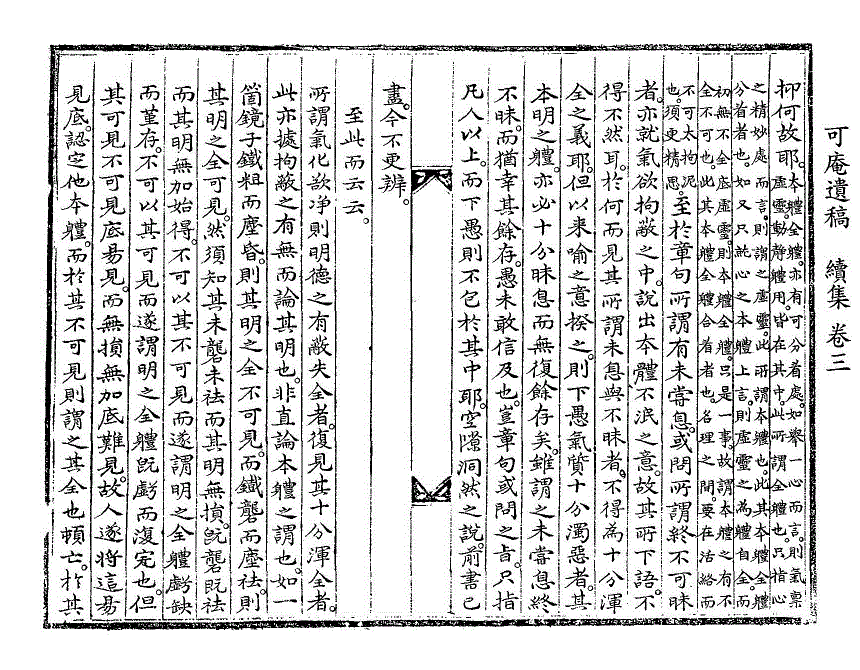 可庵遺稿 續集 卷三
抑何故耶。本體全體。亦有可分看處。如擧一心而言。則氣稟
虛靈。動靜體用。皆在其中。此所謂全體也。只指心
之精妙處而言。則謂之虛靈。此所謂本體也。此其本體全體
分看者也。如又只就心之本體上言。則虛靈之爲體自全。而
初無不全底虛靈。則本體全體。只是一事。故謂本體之有不
全不可也。此其本體全體合看者也。名理之間。要在活絡而
不可太拘泥
也。須更精思。至於章句所謂有未嘗息。或問所謂終不可昧
者。亦就氣欲拘蔽之中。說出本體不泯之意。故其所下語不
得不然耳。於何而見其所謂未息與不昧者。不得爲十分渾
全之義耶。但以來喩之意揆之。則下愚氣質十分濁惡者。其
本明之體。亦必十分昧息而無復餘存矣。雖謂之未嘗息終
不昧。而猶幸其餘存。愚未敢信及也。豈章句或問之旨。只指
凡人以上。而下愚則不包於其中耶。空隙洞然之說。前書已
盡。今不更辨。
至此而云云。
所謂氣化欲淨則明德之有蔽失全者。復見其十分渾全者。
此亦據拘蔽之有無而論其明也。非直論本體之謂也。如一
箇鏡子鐵粗而塵昏。則其明之全不可見。而鐵礱而塵祛。則
其明之全可見。然須知其未礱未祛而其明無損。旣礱旣祛
而其明無加始得。不可以其不可見而遂謂明之全體虧缺
而堇存。不可以其可見而遂謂明之全體旣虧而復完也。但
其可見不可見底易見。而無損無加底難見。故人遂將這易
見底。認定他本體。而於其不可見則謂之其全也頓亡。於其